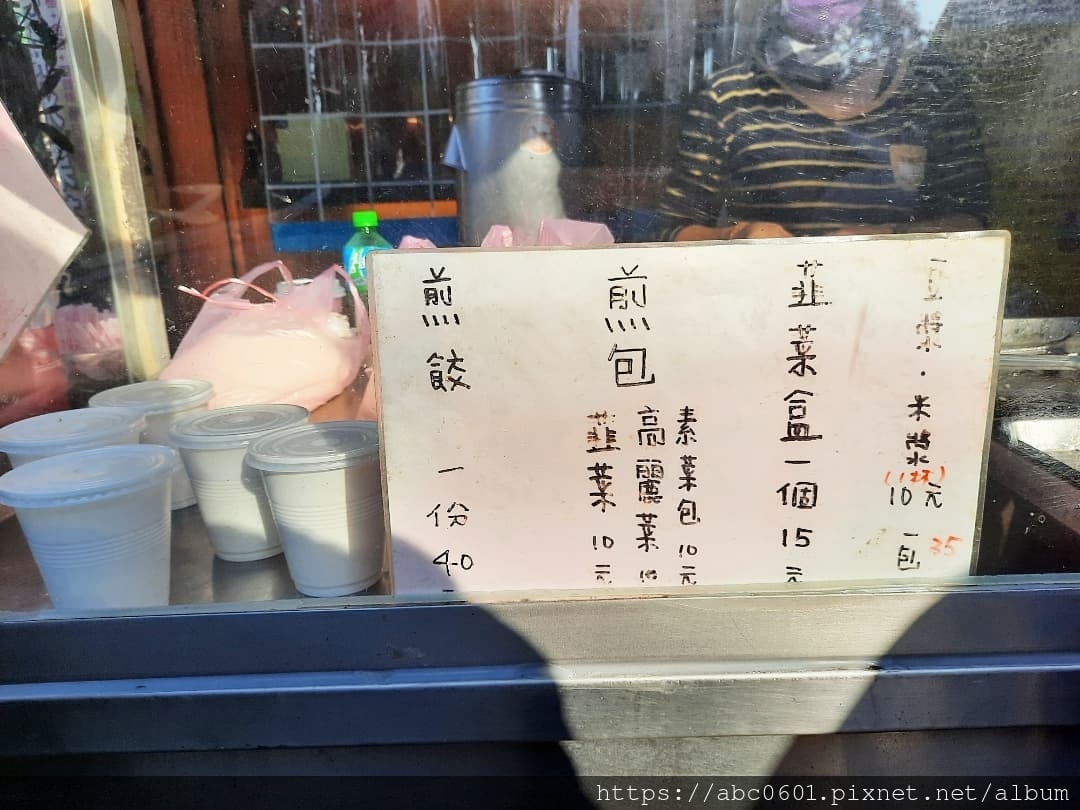 豆漿·米漿
(1杯)
10元
一包 35
韭菜盒一個15元
煎包
素菜包10元
高麗菜10
韭菜10元
煎餃
一份
40
https://abc0601.pixnet.net/album